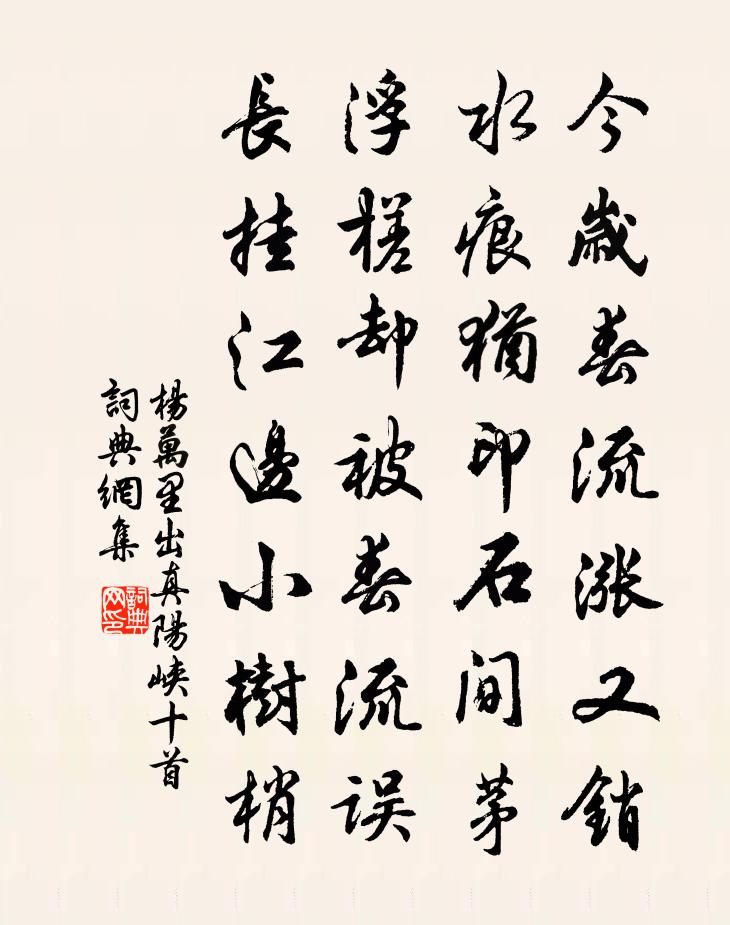 今歲春流漲又銷
水痕猶印石間茅
浮槎却被春流误
長挂江邊小樹梢
楊萬里出真陽峽十首
詞典網集
詞典网印